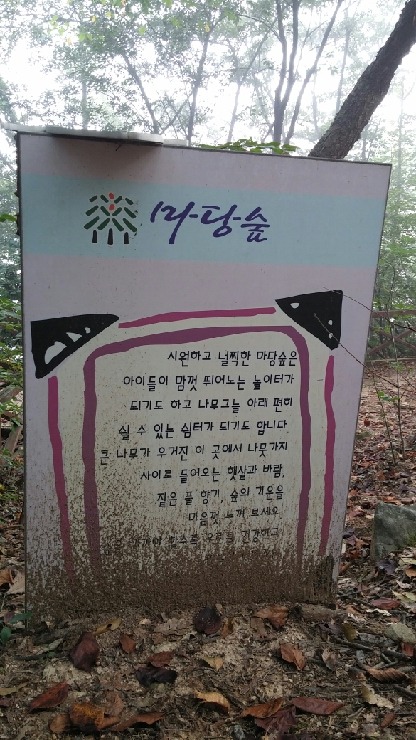 마당숲
시원하고 널찍한 마당숲은
아이들이 맘껏 뛰어노는 놀이터가
되기도 하고 나무그늘 아래 편히
쉴 수 있는 쉼터가 되기도 합니다
큰 나무가 우거진 이 곳에서 나뭇가지
사이로 들어오는 햇살과 바람,
짙은 풀 향기, 숲의 기운을
마음껏 느껴 보세요